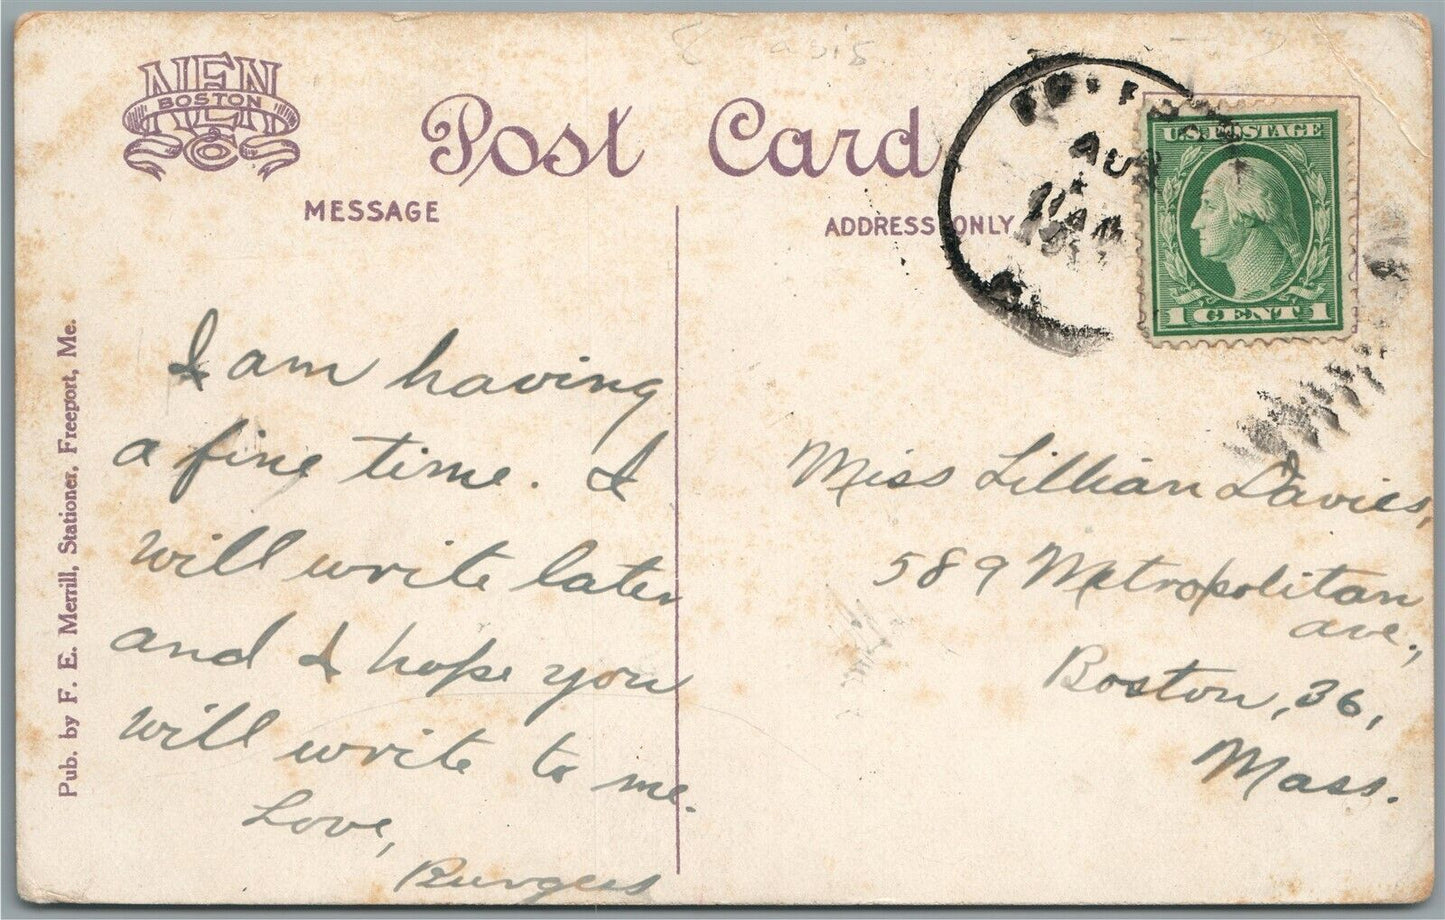 NEN
BOSTON
Co
Post Card
MESSAGE
ADDRESS ONLY
U.S. POSTAGE
1 CENT 1
AUG
11 AM
Pub. by F. E. Merrill, Stationer, Freeport, Me.
I am having
a fine time. I
will write later
and I hope you
will write to me.
Love,
Burgess
Miss Lillian Davies,
589 Metropolitan
ave.,
Boston, 36,
Mass.